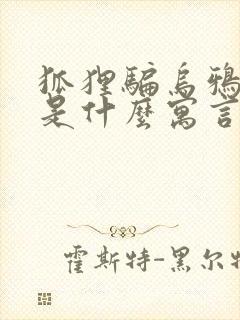 狐狸騙烏鴉
是什麼寓言
霍斯特-黑尔特